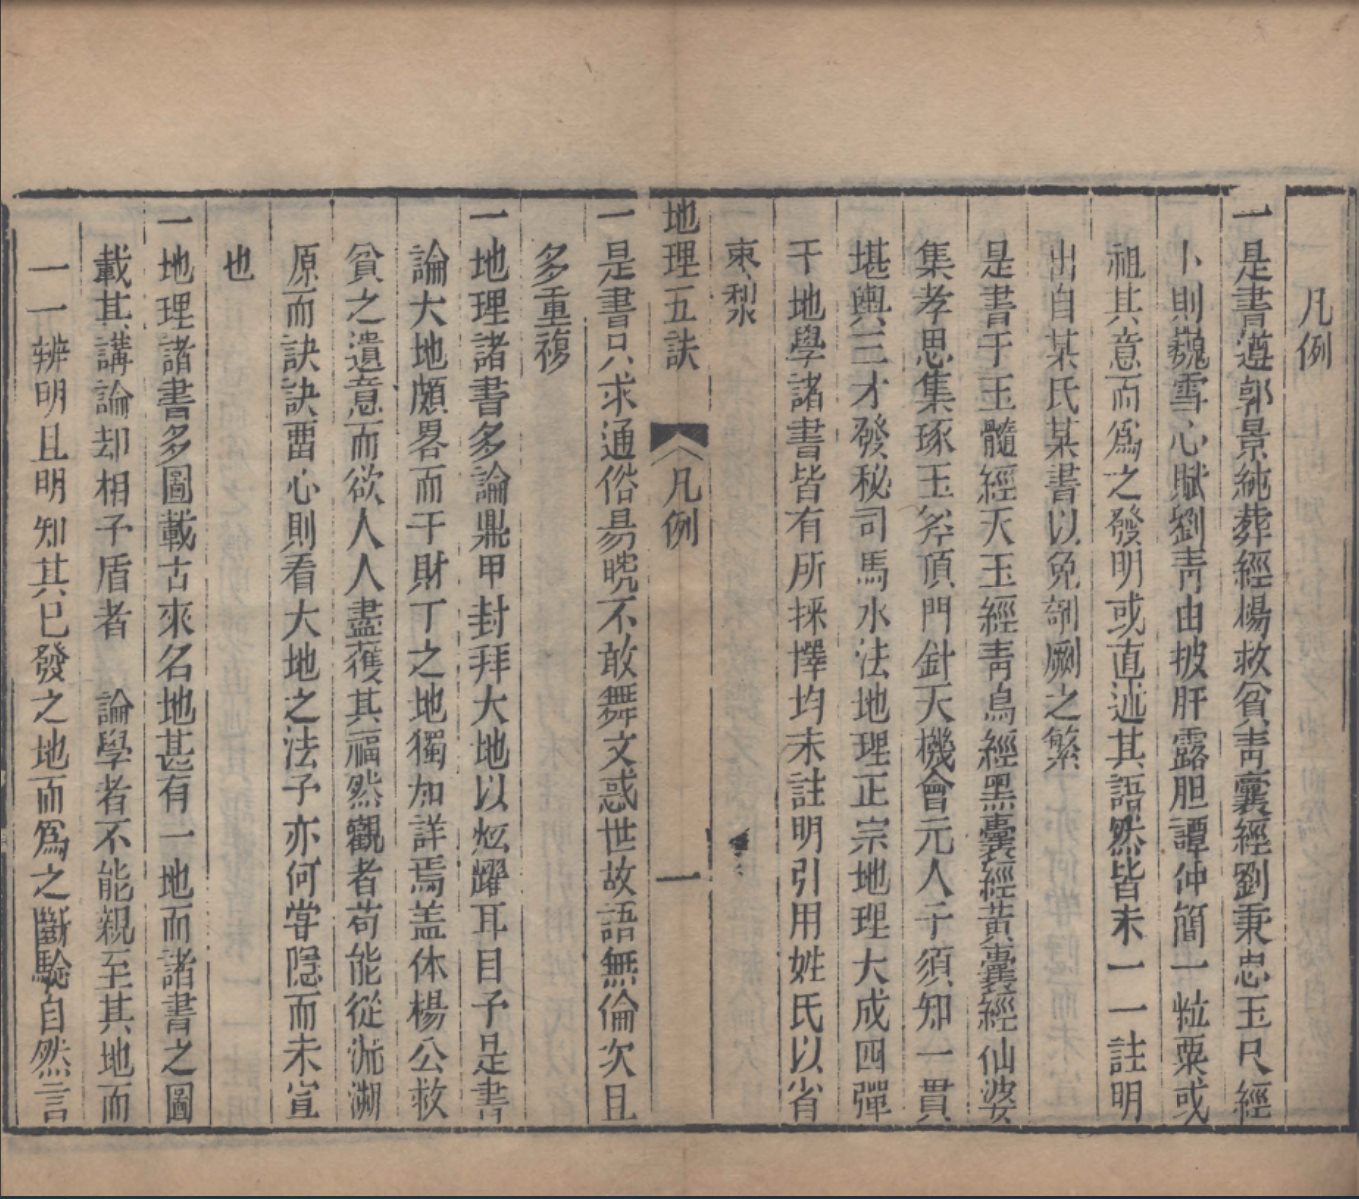 凡例
一是書遵郭景純葬經楊救貧青囊經劉秉忠玉尺經
卜則巍雪心賦劉青田披肝露胆譚仲簡一粒粟或
祖其意而為之發明或直述其語然皆未一一註明
出自某氏某書以免剞劂之繁
是書于玉髓經天玉經青烏經黑囊經黃囊經仙婆
集孝思集琢玉斧頂門針天機會元人子須知一貫
堪輿三才發秘司馬水法地理正宗地理大成四彈
子地學諸書皆有所採擇均未註明引用姓氏以省
棗梨
地理五訣 凡例 一
一是書只求通俗易晓不敢舞文惑世故語無倫次且
多重複
一地理諸書多論鼎甲封拜大地以炫耀耳目予是書
論大地頗畧而于財丁之地獨加詳焉盖休楊公救
貧之遺意而欲人人盡獲其福然觀者苟能從流溯
原而訣訣畱心則看大地之法予亦何甞隱而未宣
也
一地理諸書多圖載古來名地甚有一地而諸書之圖
載其講論却相矛盾者 論學者不能親至其地而
一一辨明且明知其已發之地而為之斷驗自然言